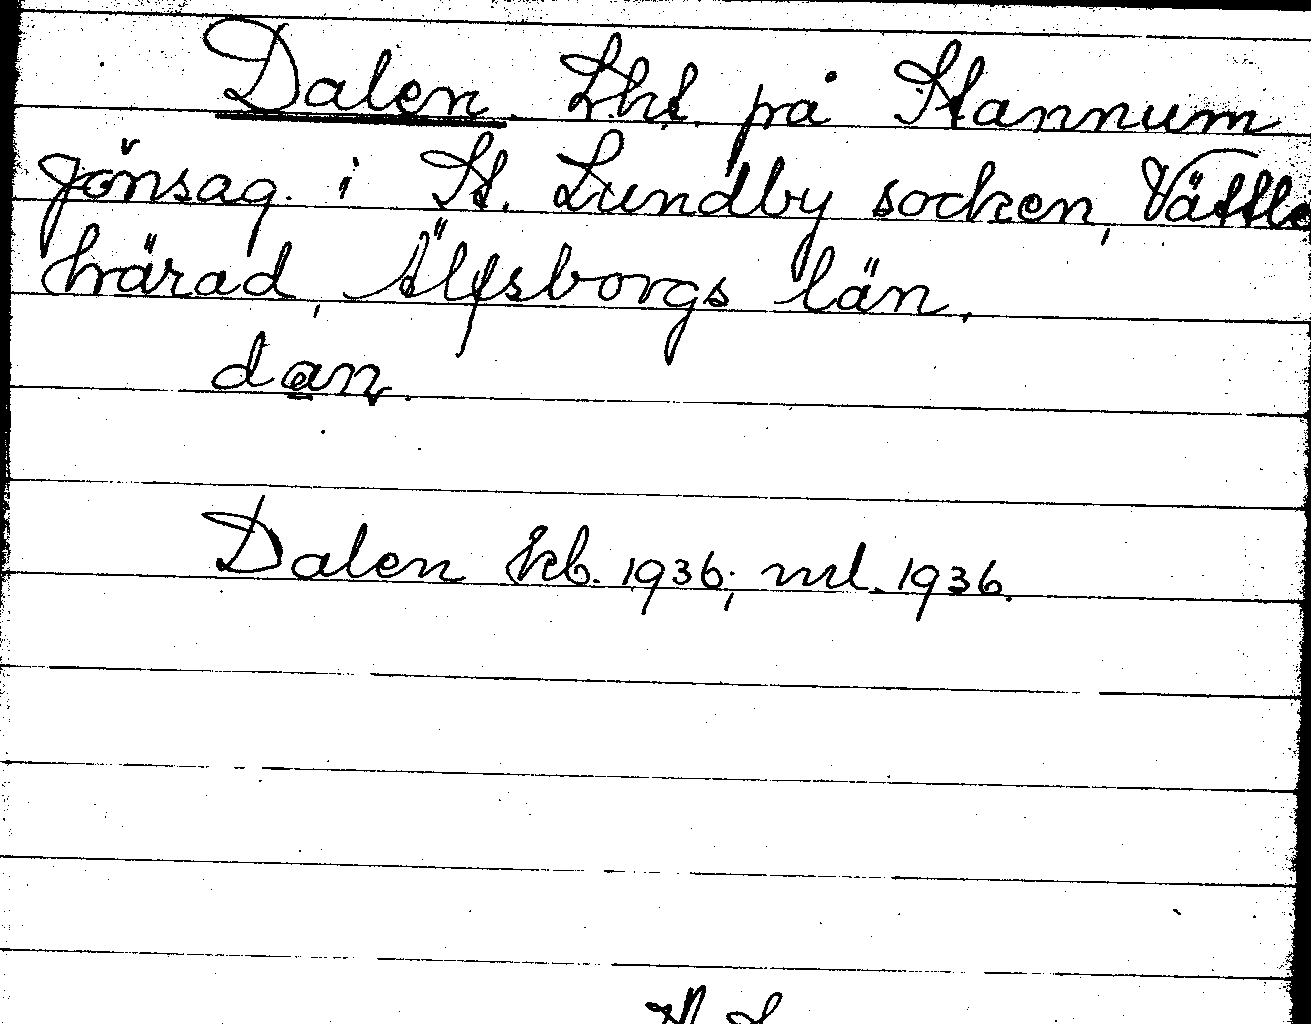 Dalen. Lht. på Stannum
Jönsag. i St. Lundby socken, Vättle
härad, Älfsborgs län.
dan.
Dalen kb. 1936; ml. 1936.